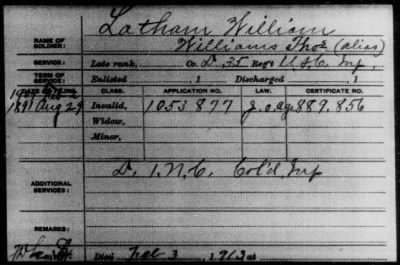 Latham William
NAME OF SOLDIER: Williams Thos (alias)
SERVICE: Late rank, Co. D, 35 Reg't U.S.C. Inf.
TERM OF SERVICE: Enlisted , 1 Discharged , 1
DATE OF FILING. CLASS. APPLICATION NO. LAW. CERTIFICATE NO.
1891 Aug 29 Invalid, 1053877 889.856
Widow,
Minor,
ADDITIONAL SERVICES: D. 1. N.C. Col'd. Inf
REMARKS:
Died 3, 1913 at